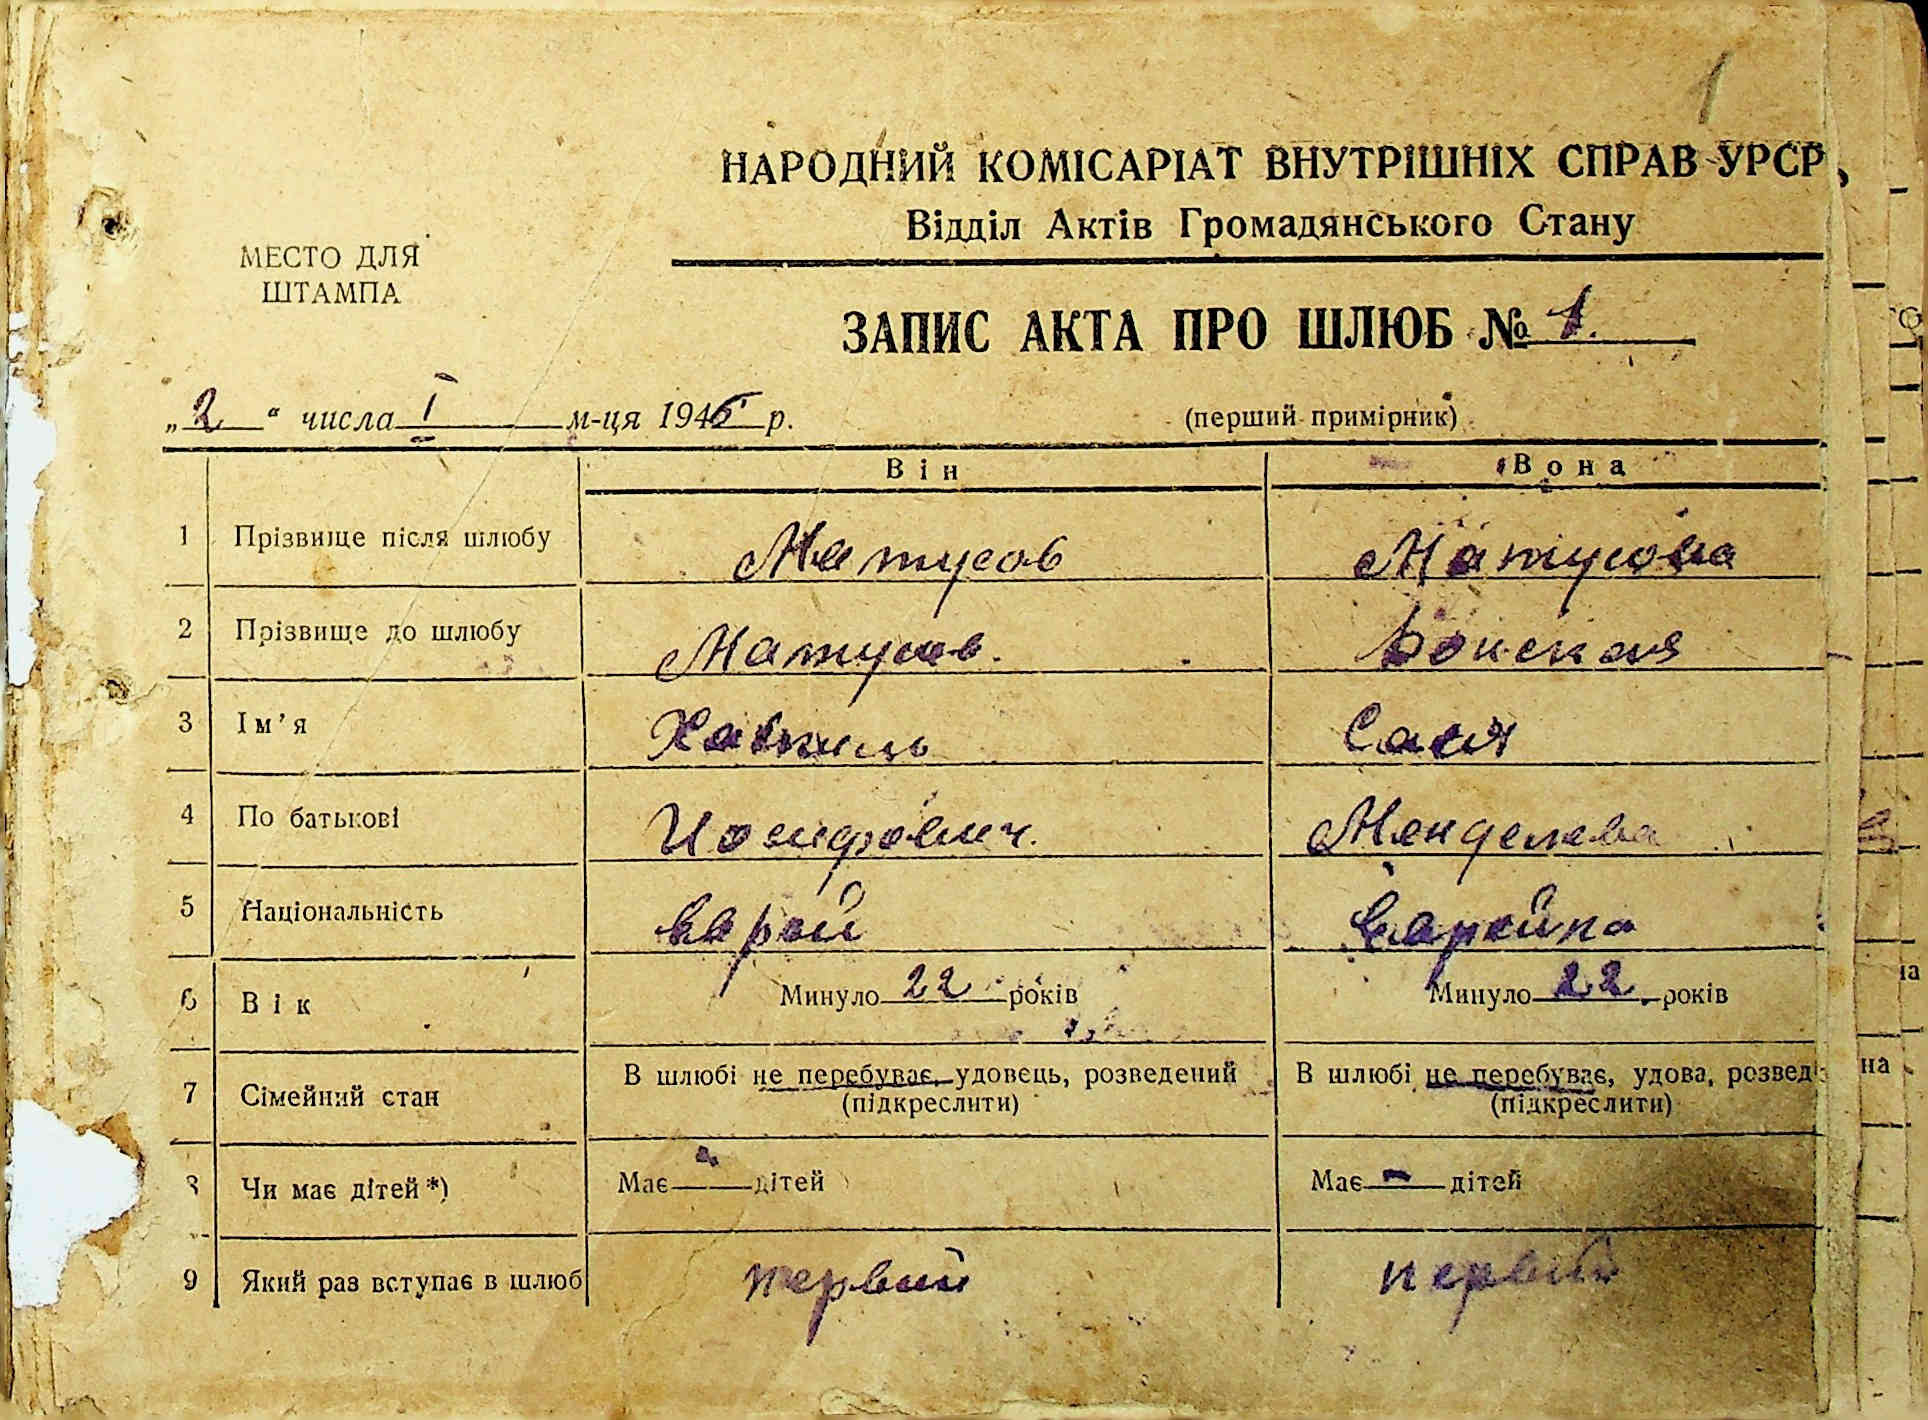 1
НАРОДНИЙ КОМІСАРІАТ ВНУТРІШНІХ СПРАВ УРСР
Відділ Актів Громадянського Стану
МЕСТО ДЛЯ
ШТАМПА
ЗАПИС АКТА ПРО ШЛЮБ № 1.
„2“ числа I м-ця 1945 р. (перший примірник)
Він Вона
1 Прізвище після шлюбу Матусов Матусова
2 Прізвище до шлюбу Матусов.
3 Ім'я
4 По батькові Иосифович. Менделева
5 Національність еврей еврейка
6 Вік Минуло 22 років Минуло 22 років
7 Сімейний стан В шлюбі не перебуває, удовець, розведений В шлюбі не перебуває, удова, розвед
(підкреслити) (підкреслити)
8 Чи має дітей*) Має - дітей Має - дітей
9 Який раз вступає в шлюб первый первый